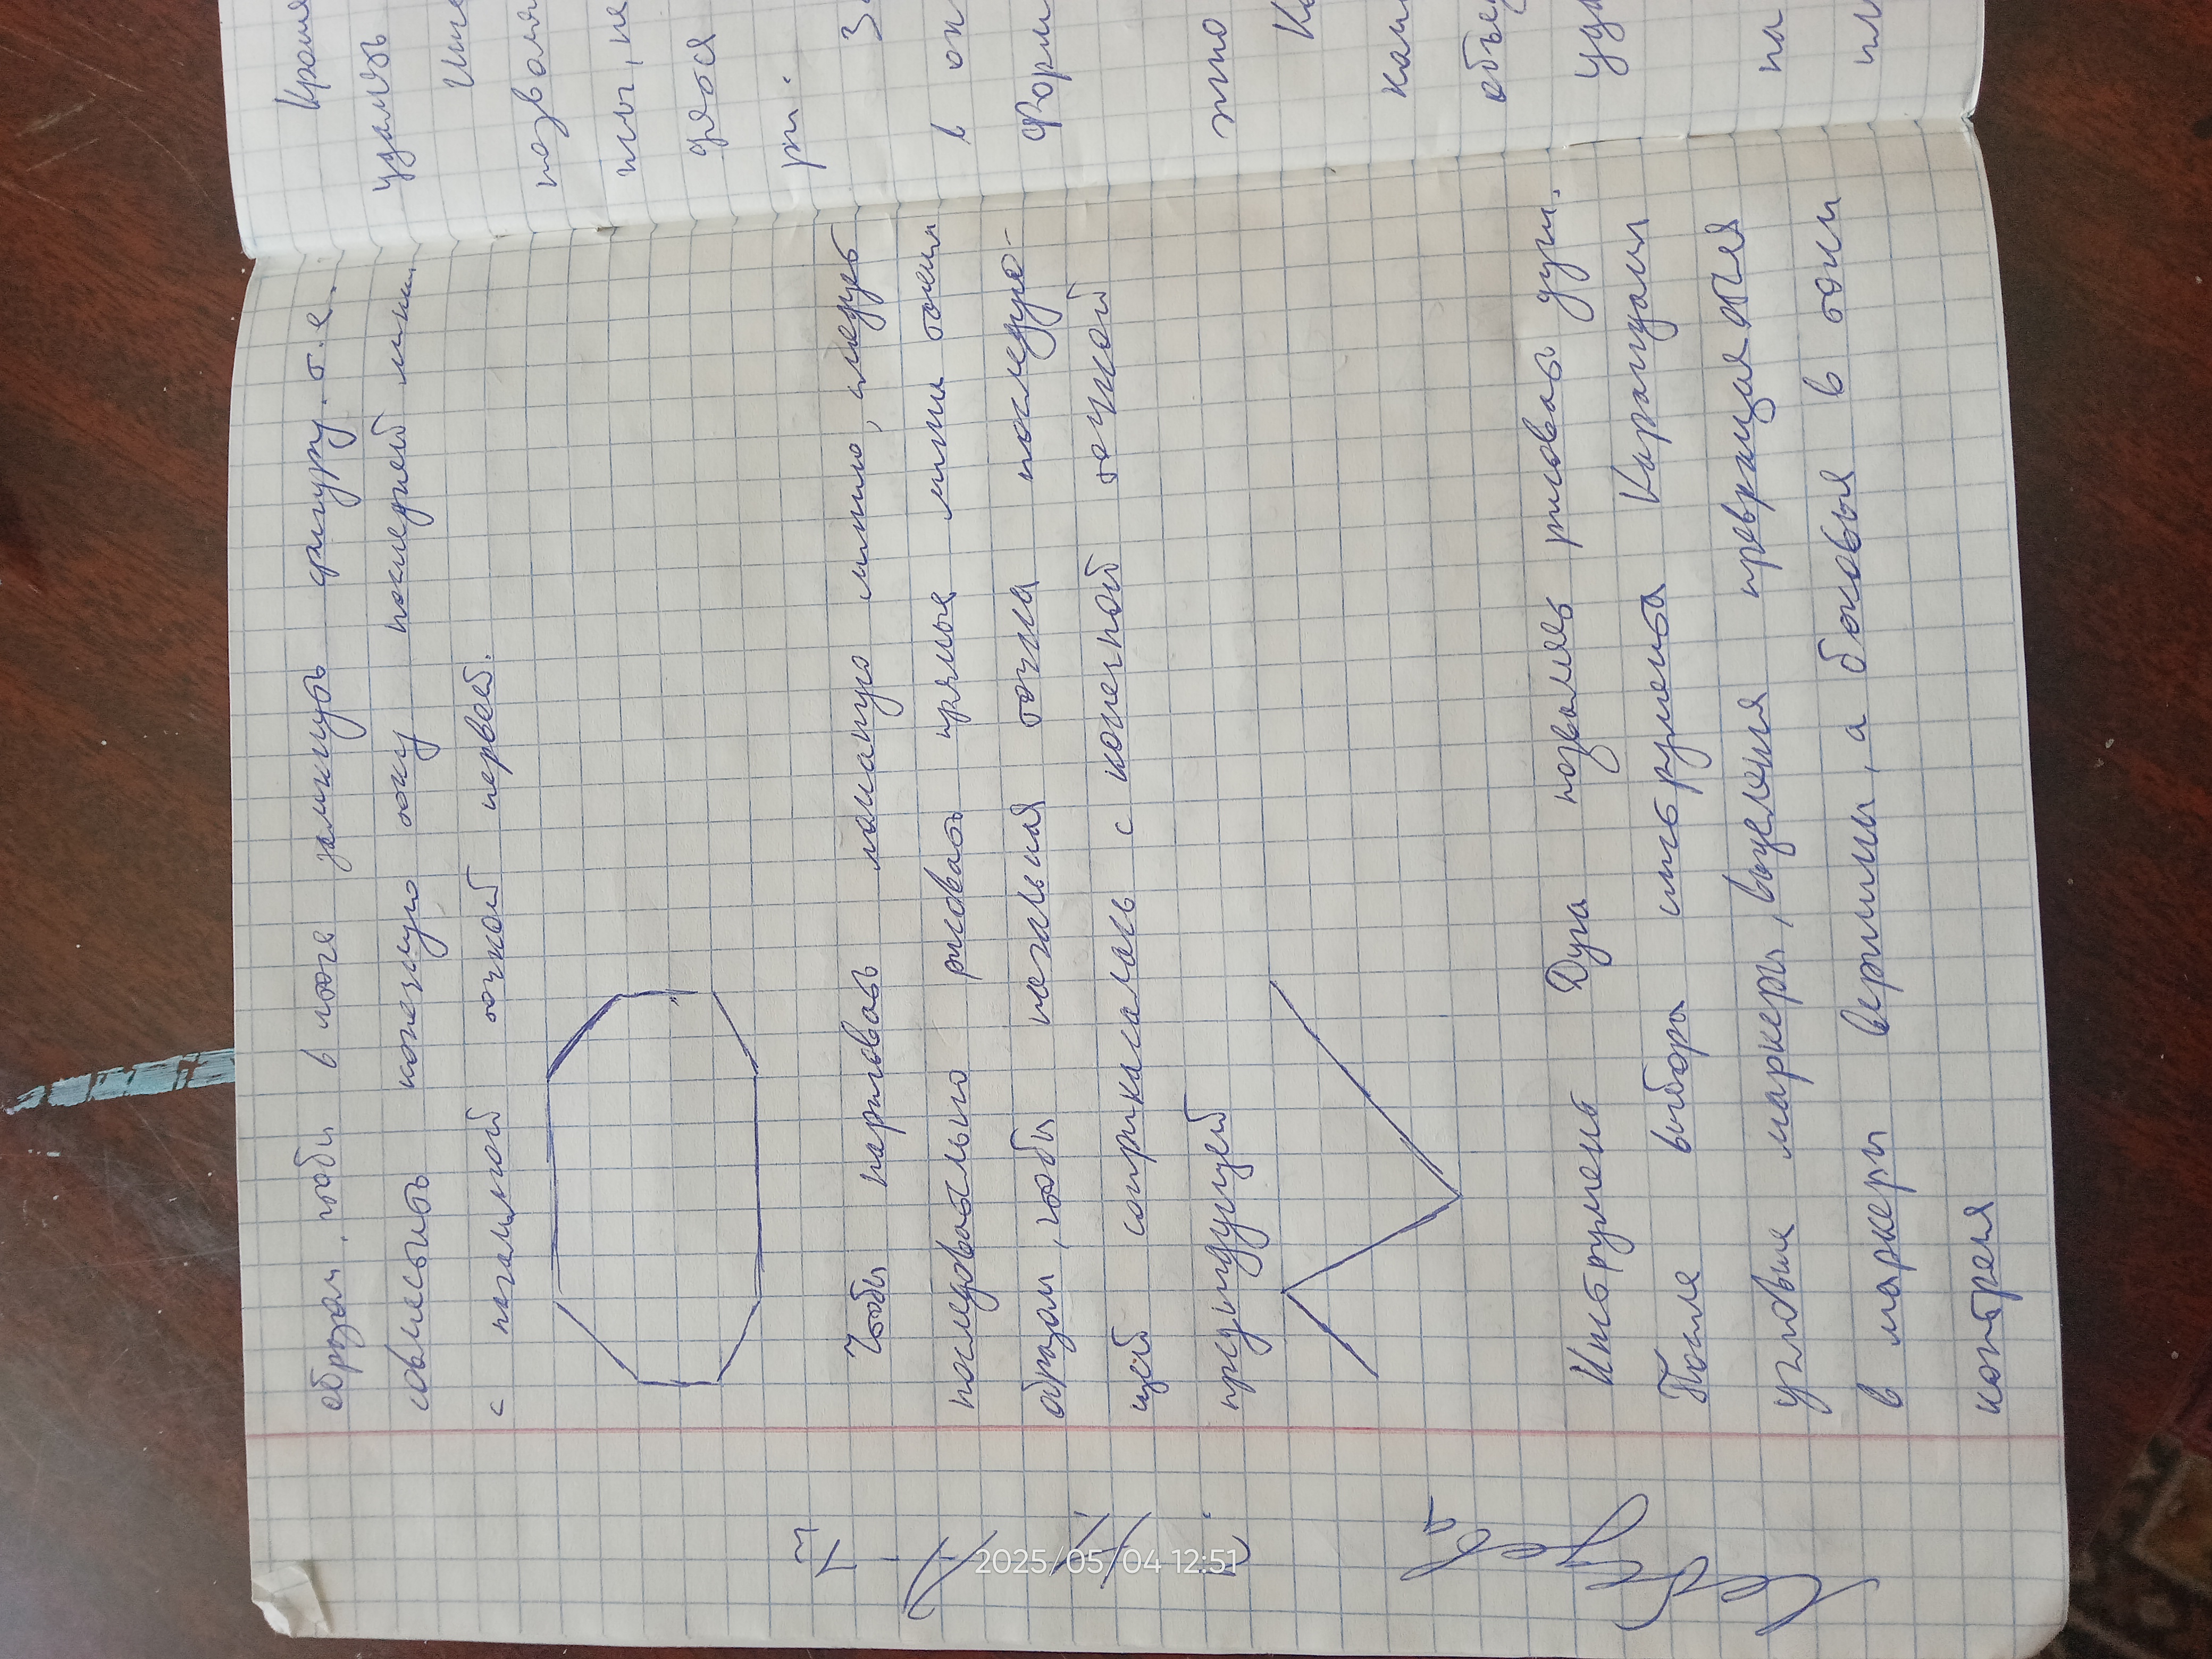 образом, чтобы в итоге замкнуть фигуру. т.е.
совместить конечную точку последней линии
с начальной точкой первой.
Чтобы нарисовать ломаную линию, следует
последовательно рисовать прямые линии таким
образом, чтобы начальная точка последую-
щей соприкасалась с конечной точкой
предыдущей
Инструмент Дуга позволяет рисовать дуги.
После выбора инструмента Карандаши
угловые маркеры, выделения превращаются
в маркеры вершины, а боковые в точки
контроля
Кроме
удалять
позволя
в оп
Форм
жно
объед
уда
на
2025/05/04 12:51